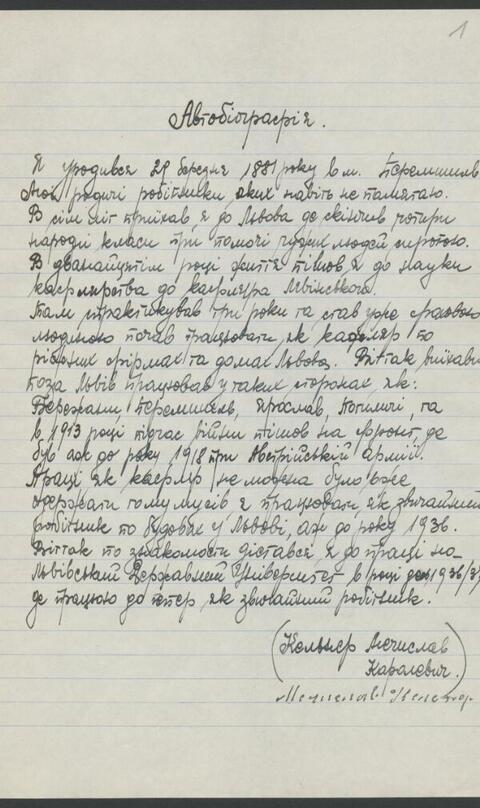 1
Автобіографія.
Я уродився 29 березня 1881 року в м. Перемишль
Мої родичі робітники яких навіть не памятаю.
В сім літ приїхав я до Львова де скінчив чотири
народні класи при помочі чужих людей сиротою.
В дванайцятім році життя пішов я до науки
кафлярства до кафляра Лівінського.
Там практикував три роки та став уже фаховою
людиною почав працювати як кафляр по
ріжних фірмах та домах Львова. Відтак виїхавши
поза Львів працював у таких сторонах як:
Бережани, Перемишель, Ярослав, та
в 1913 році підчас війни пішов на фронт, де
був аж до року 1918 при Австрійській армії.
Праці як кафляр не можна було вже
одержати тому мусів я працювати як звичайний
робітник по будовах у Львові, аж до року 1936.
Відтак по знакомости дістався я до праці на
Львівський Державний Університет в році 1936/37
де працюю до тепер як звичайний робітник.
(Кельнер Мечислав
Каралевич.)